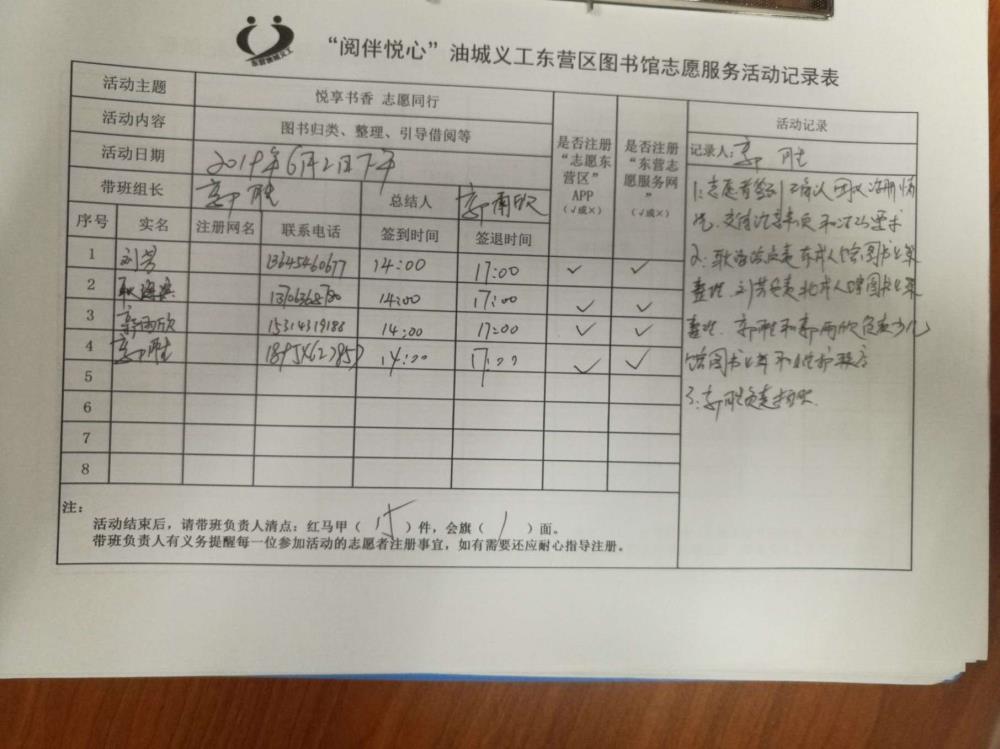 东营油城义工
“阅伴悦心”油城义工东营区图书馆志愿服务活动记录表
活动主题 悦享书香 志愿同行
活动内容 图书归类、整理、引导借阅等
活动日期 2019年6月2日下午
带班组长 郭胜 总结人 郭雨欣
是否注册“志愿东营区”APP(√或×)
是否注册“东营志愿服务网”(√或×)
活动记录
记录人: 郭胜
序号 实名 注册网名 联系电话 签到时间 签退时间
1 刘芳 13645460677 14:00 17:00 ✓ ✓
2 耿 14:00 17:00 ✓ ✓
3 郭雨欣 15314319188 14:00 17:00 ✓ ✓
4 郭胜 14:00 17:00 ✓ ✓
5
6
7
8
1:志愿者签到
整理、刘芳负责北成人馆图书上架
整理、郭胜和郭雨欣负责少儿
馆图书上架和维护秩序
3:郭胜负责拍照
注:
活动结束后，请带班负责人清点：红马甲（ 15 ）件，会旗（ 1 ）面。
带班负责人有义务提醒每一位参加活动的志愿者注册事宜，如有需要还应耐心指导注册。